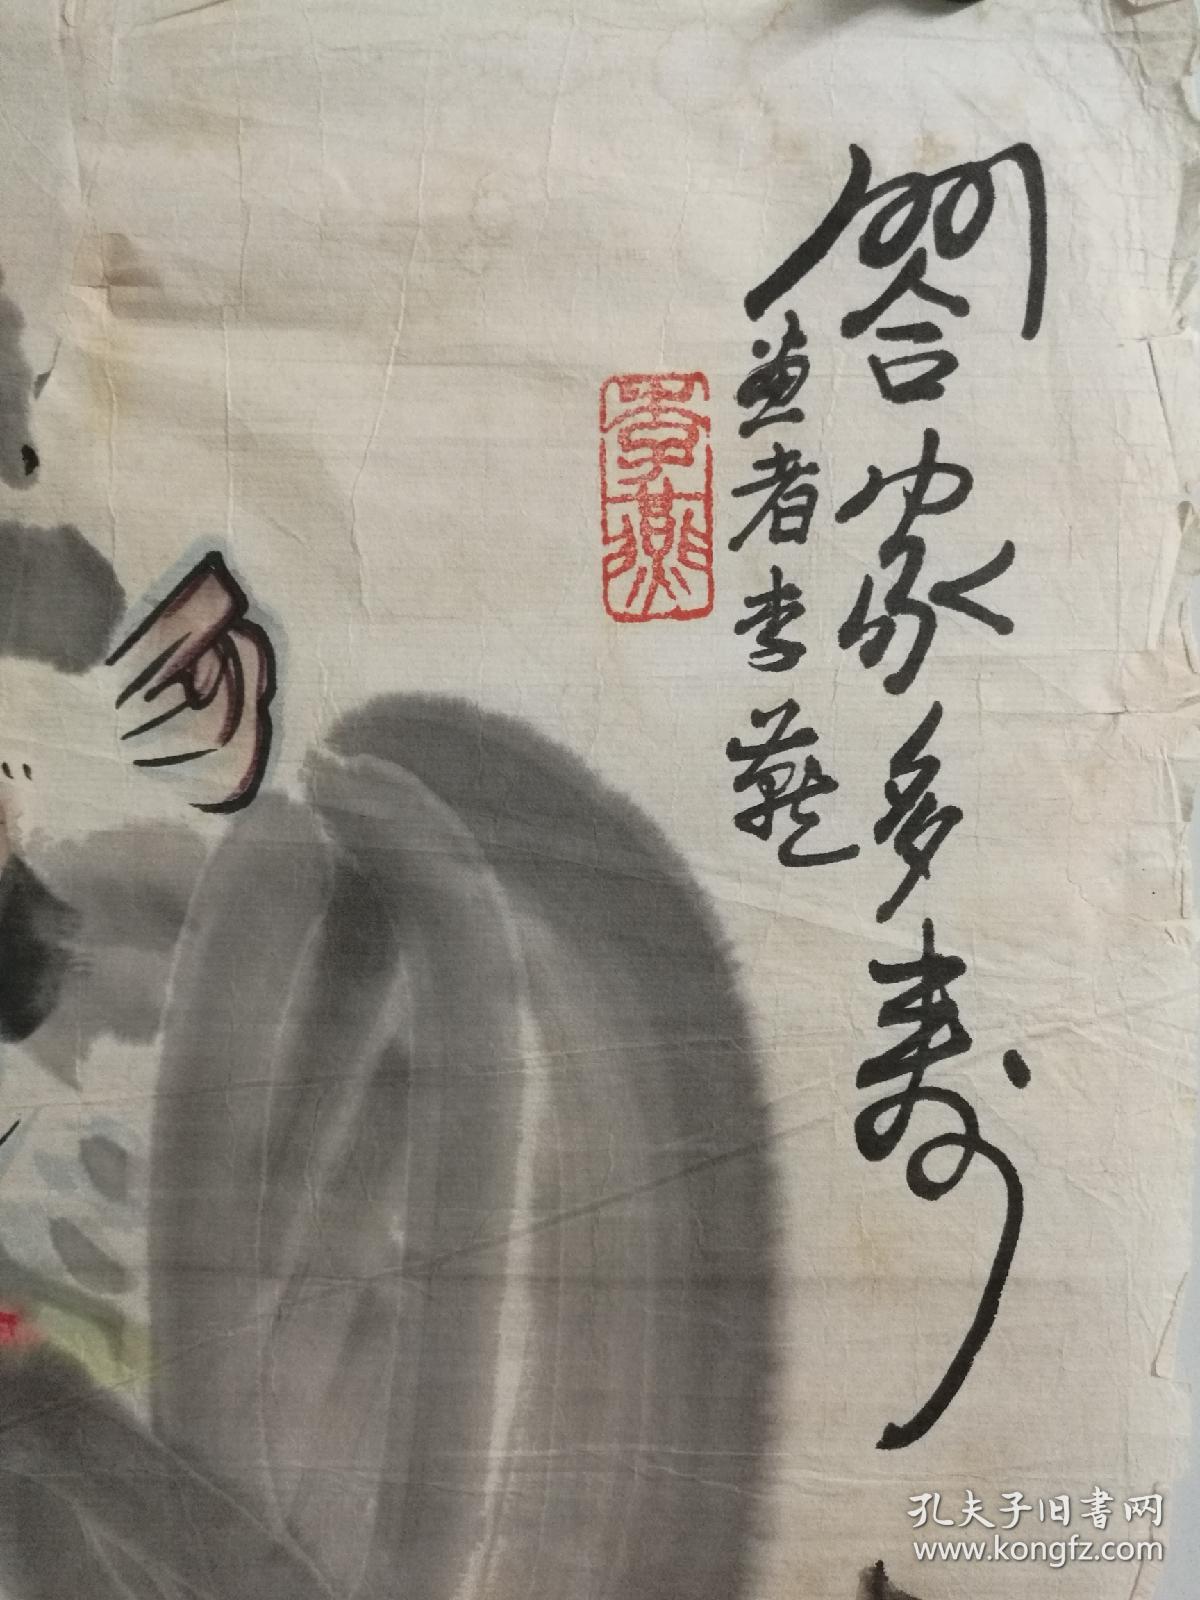 阖家多寿
画者李燕
李燕
孔夫子旧书网
www.kongfz.com